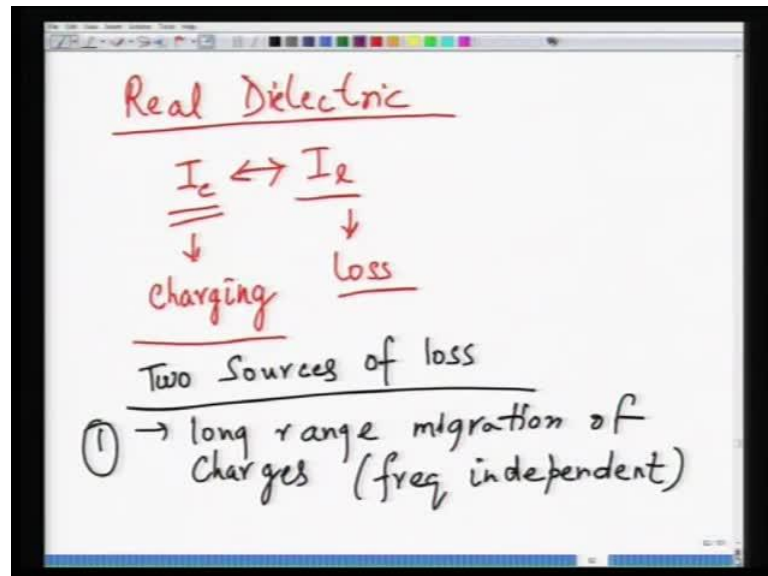 Real Dielectric
I_c ↔ I_l
↓ ↓
charging loss
Two Sources of loss
① → long range migration of
charges (freq independent)